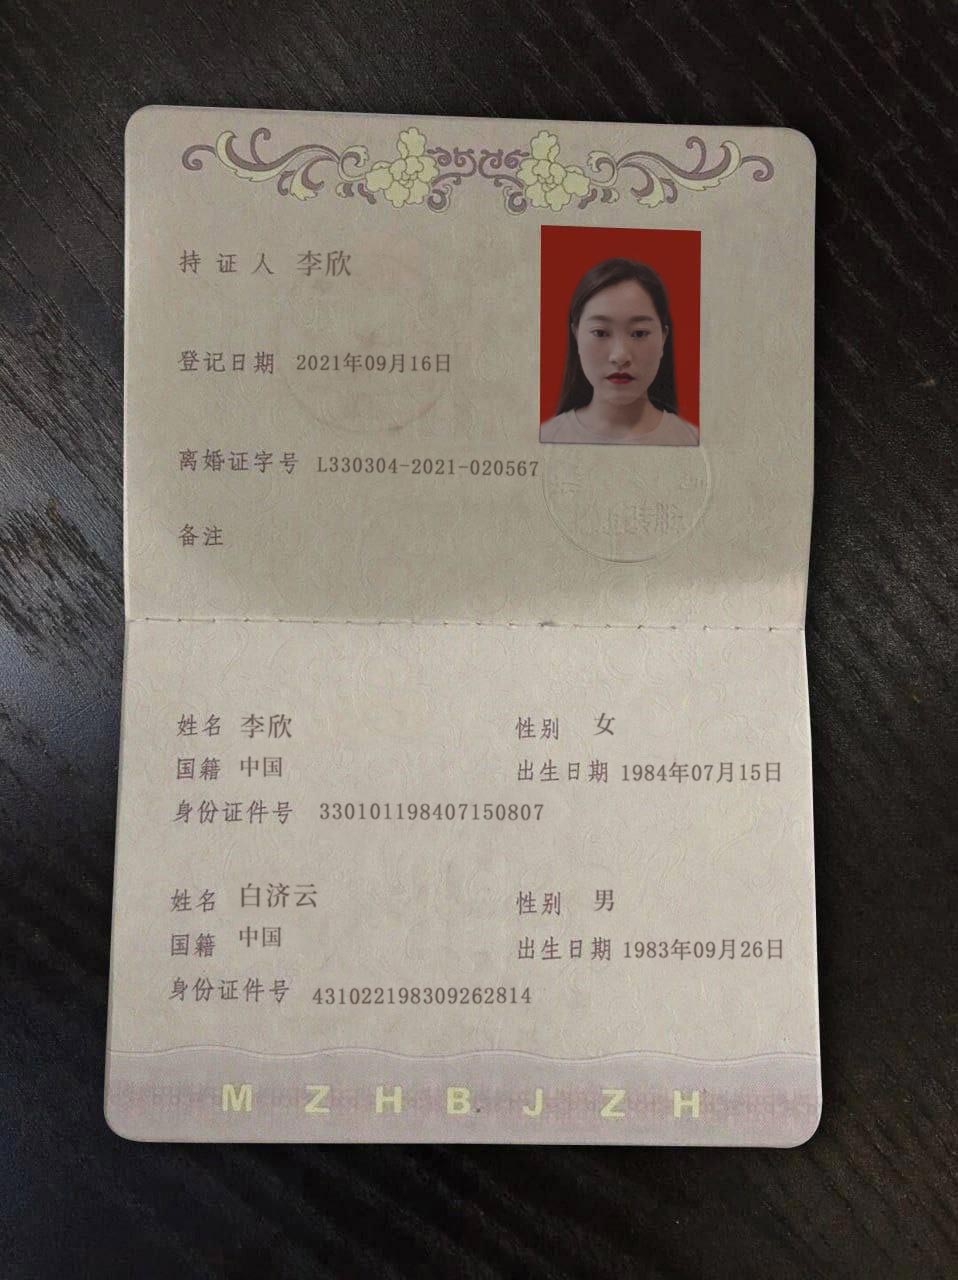 持证人 李欣
登记日期 2021年09月16日
离婚证字号 L330304-2021-020567
备注
姓名 李欣 性别 女
国籍 中国 出生日期 1984年07月15日
身份证件号 330101198407150807
姓名 白济云 性别 男
国籍 中国 出生日期 1983年09月26日
身份证件号 431022198309262814
M Z H B J Z H